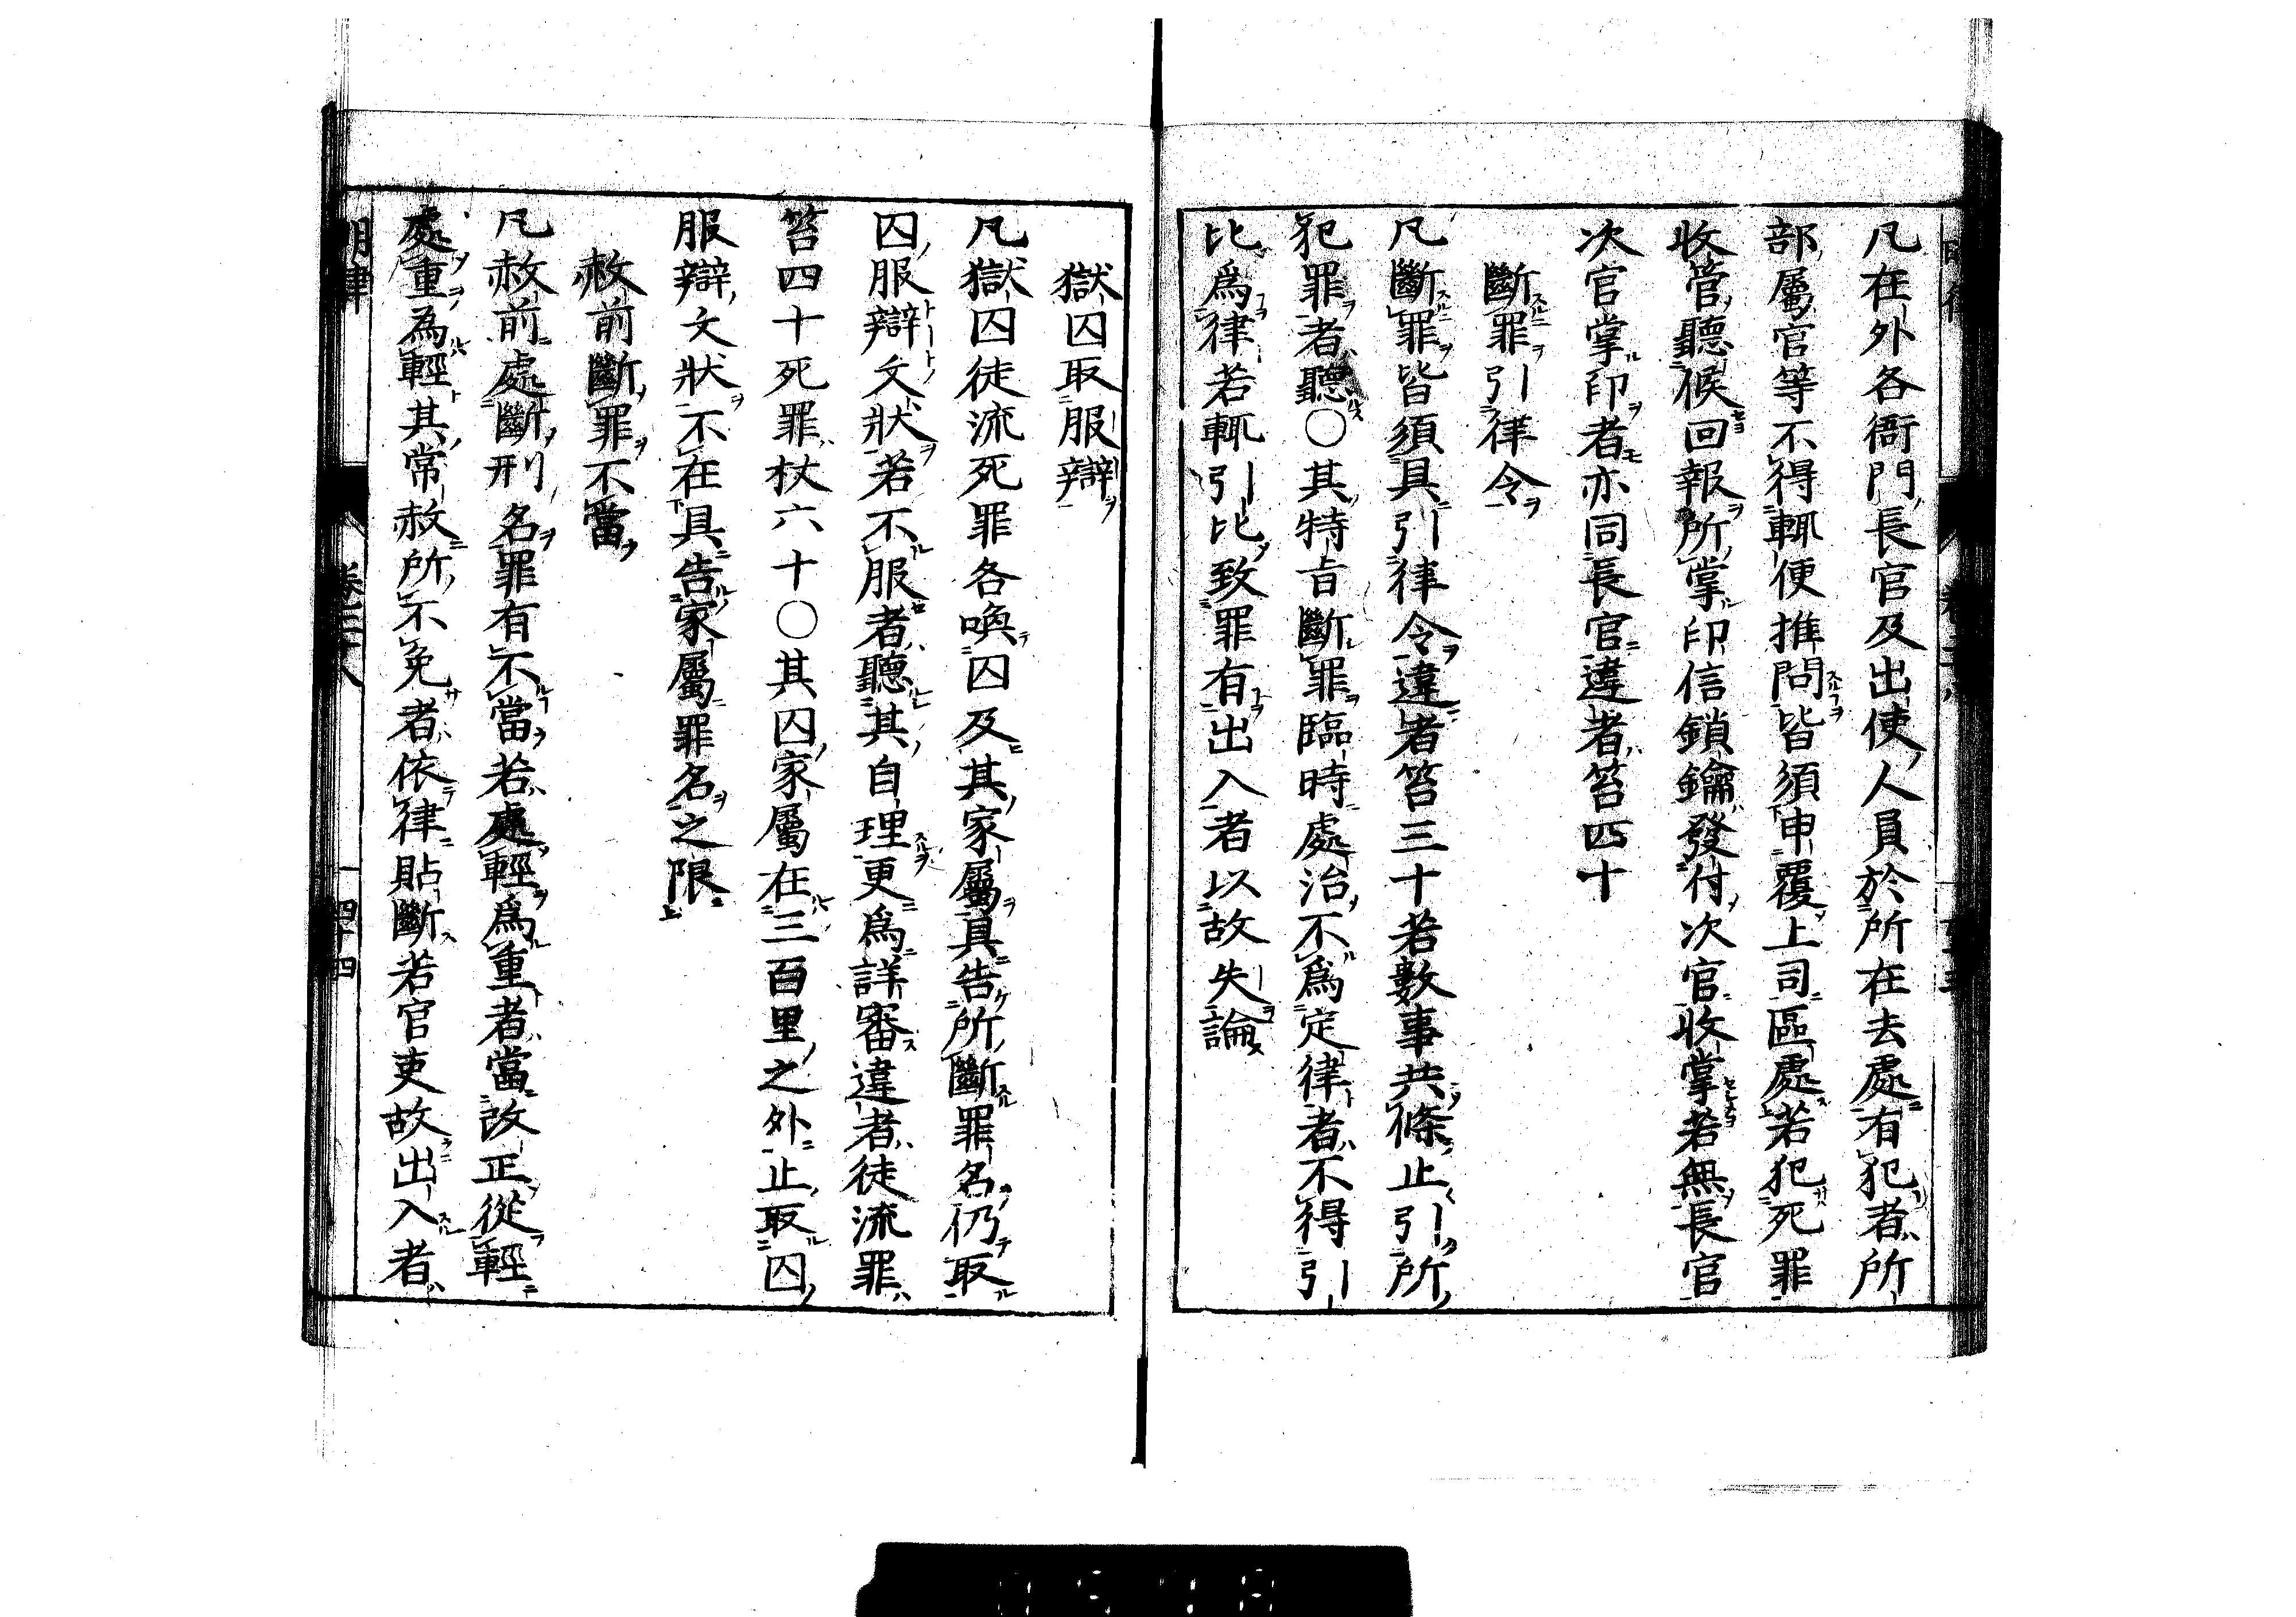 凡在外各衙門長官及出使人員於所在去處有犯者所
部屬官等不得輒便推問皆須申覆上司區處若犯死罪
收管聽候回報所掌印信鎖鑰發付次官收掌若無長官
次官掌印者亦同長官違者笞四十
斷罪引律令
凡斷罪皆須具引律令違者笞三十若數事共條止引所
犯罪者聽○其特旨斷罪臨時處治不爲定律者不得引
比爲律若輒引比致罪有出入者以故失論
獄囚取服辯
凡獄囚徒流死罪各喚囚及其家屬具告所斷罪名仍取
囚服辯文狀若不服者聽其自理更爲詳審違者徒流罪
笞四十死罪杖六十○其囚家屬在三百里之外止取囚
服辯文狀不在具告家屬罪名之限
赦前斷罪不當
凡赦前處斷刑名罪有不當若處輕爲重者當改正從輕
處重為輕其常赦所不免者依律貼斷若官吏故出入者
明律